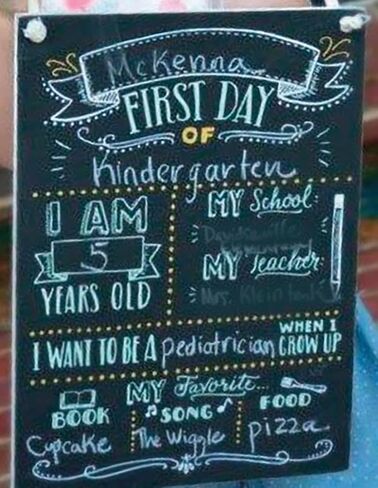 McKenna
FIRST DAY
OF
Kindergarten
I AM
5
YEARS OLD
MY School:
MY Teacher:
Mrs.
I WANT TO BE A pediatrician WHEN I GROW UP
MY Favorite...
BOOK
Cupcake
SONG
The Wiggle
FOOD
pizza